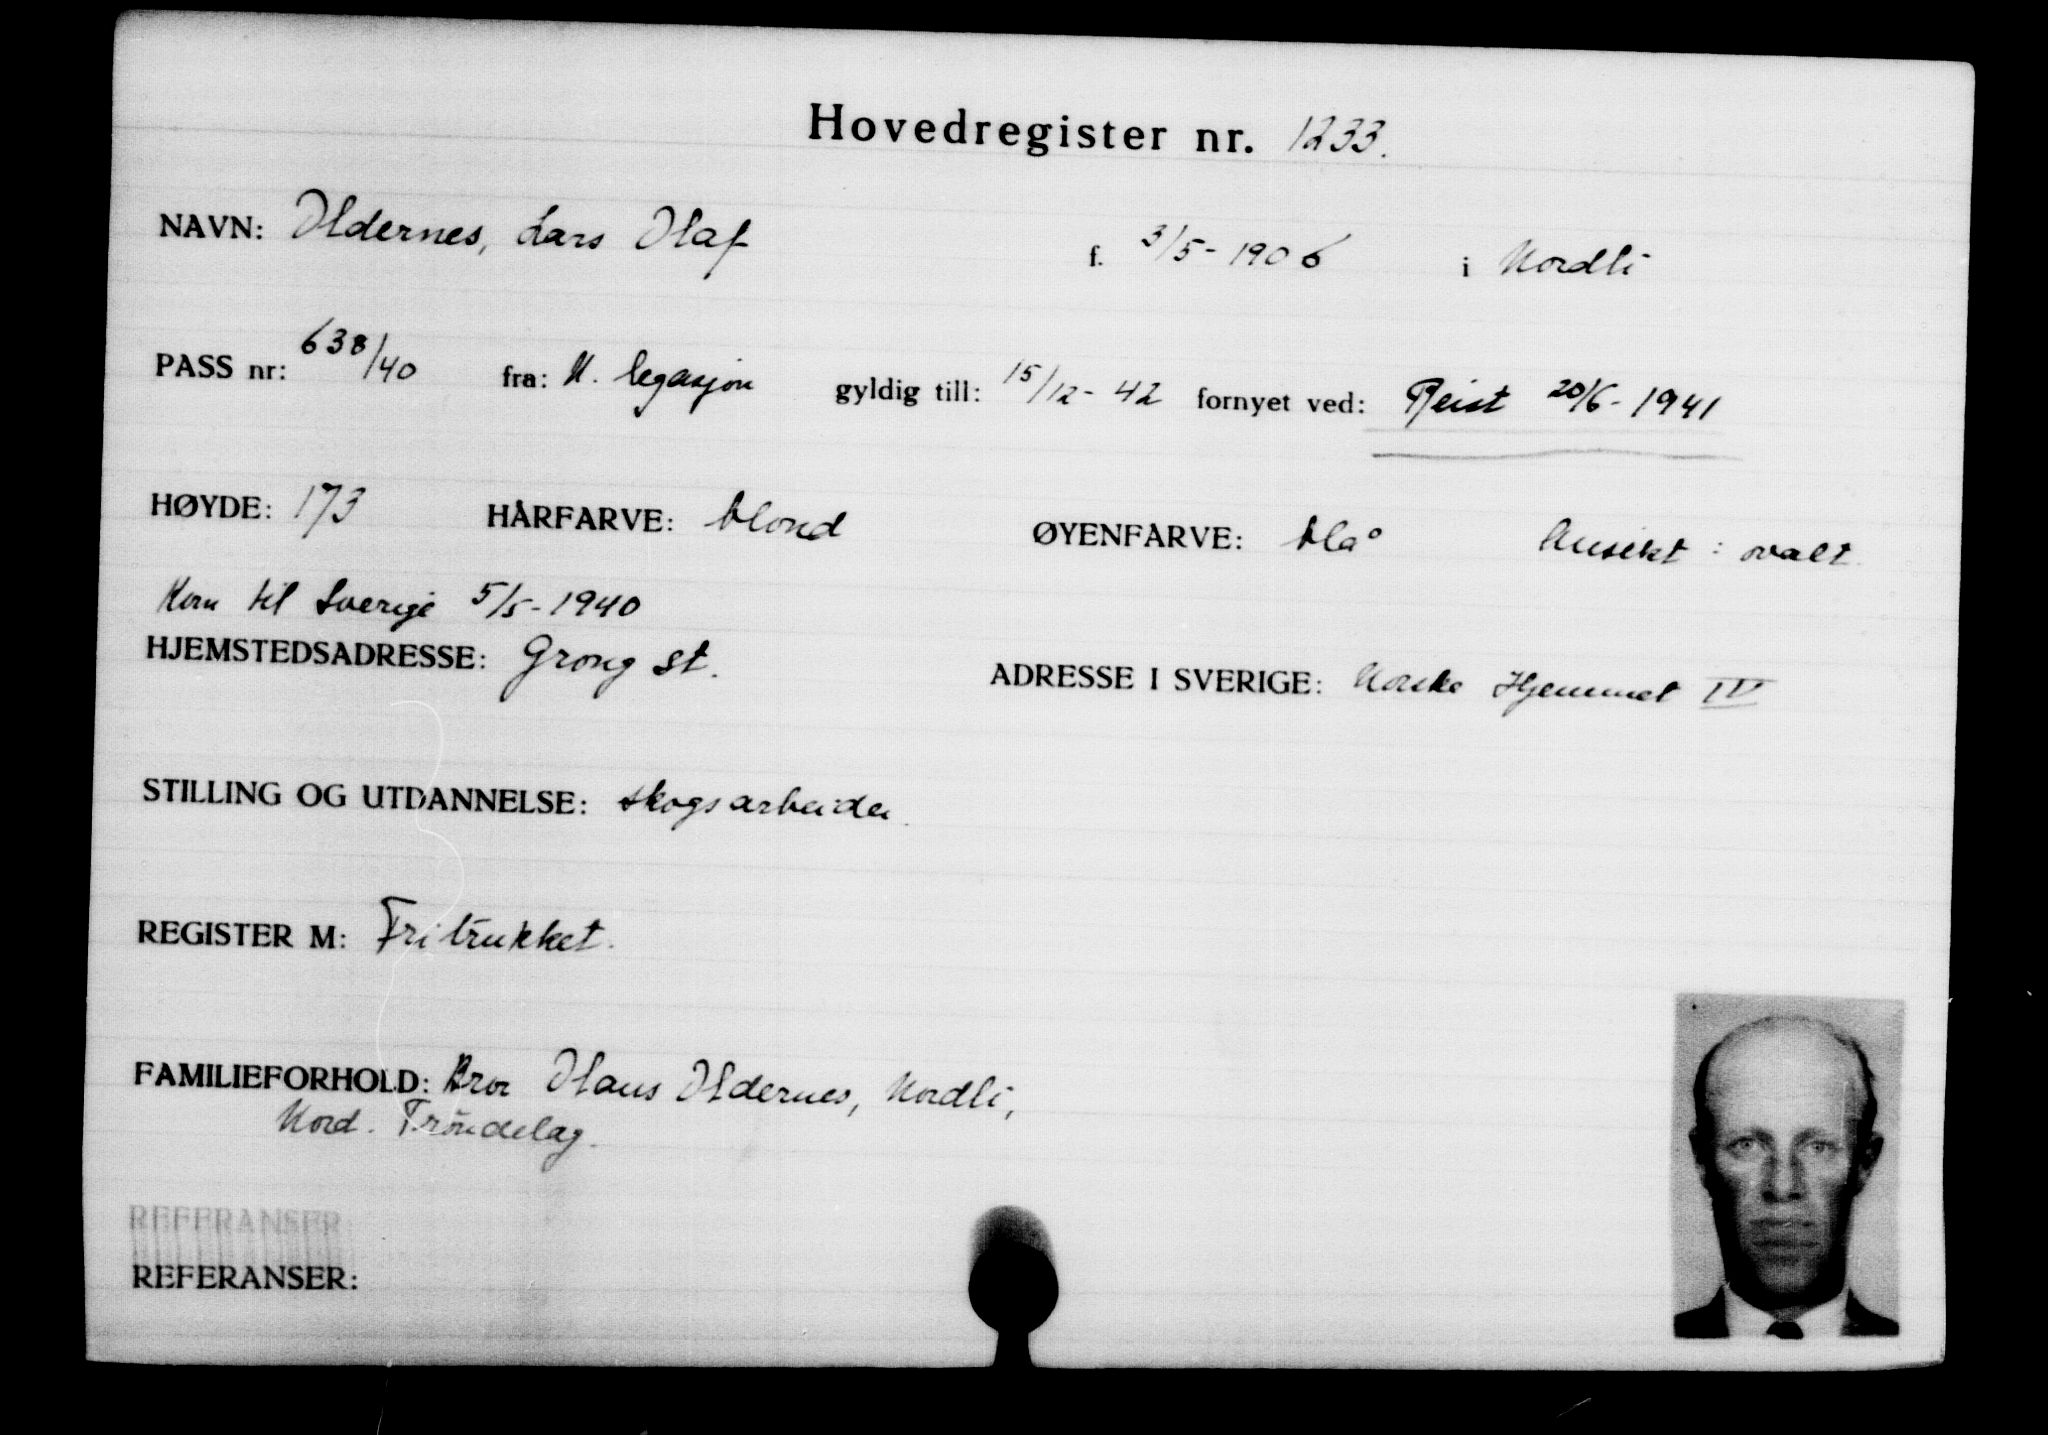 Hovedregister nr. 1233.
NAVN: Oldernes, Lars Olaf f. 3/5-1906 i Nordli
PASS nr: 638/40 fra: N. legasjon gyldig till: 15/12-42 fornyet ved: Reist 20/6-1941
HØYDE: 173 HÅRFARVE: blond ØYENFARVE: blå Ansikt: ovalt.
Kom til Sverige 5/5-1940
HJEMSTEDSADRESSE: Grong st. ADRESSE I SVERIGE: Norske Hjemmet IV
STILLING OG UTDANNELSE: skogsarbeider.
REGISTER M: Fritrukket.
FAMILIEFORHOLD: Bror Olaus Oldernes, Nordli,
Nord. Trøndelag.
REFERANSER:
REFERANSER: